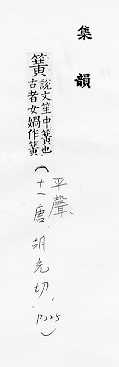 集韻
簧說文笙中簧也
古者女媧作簧
(平聲
十一唐.胡光切.
P225)